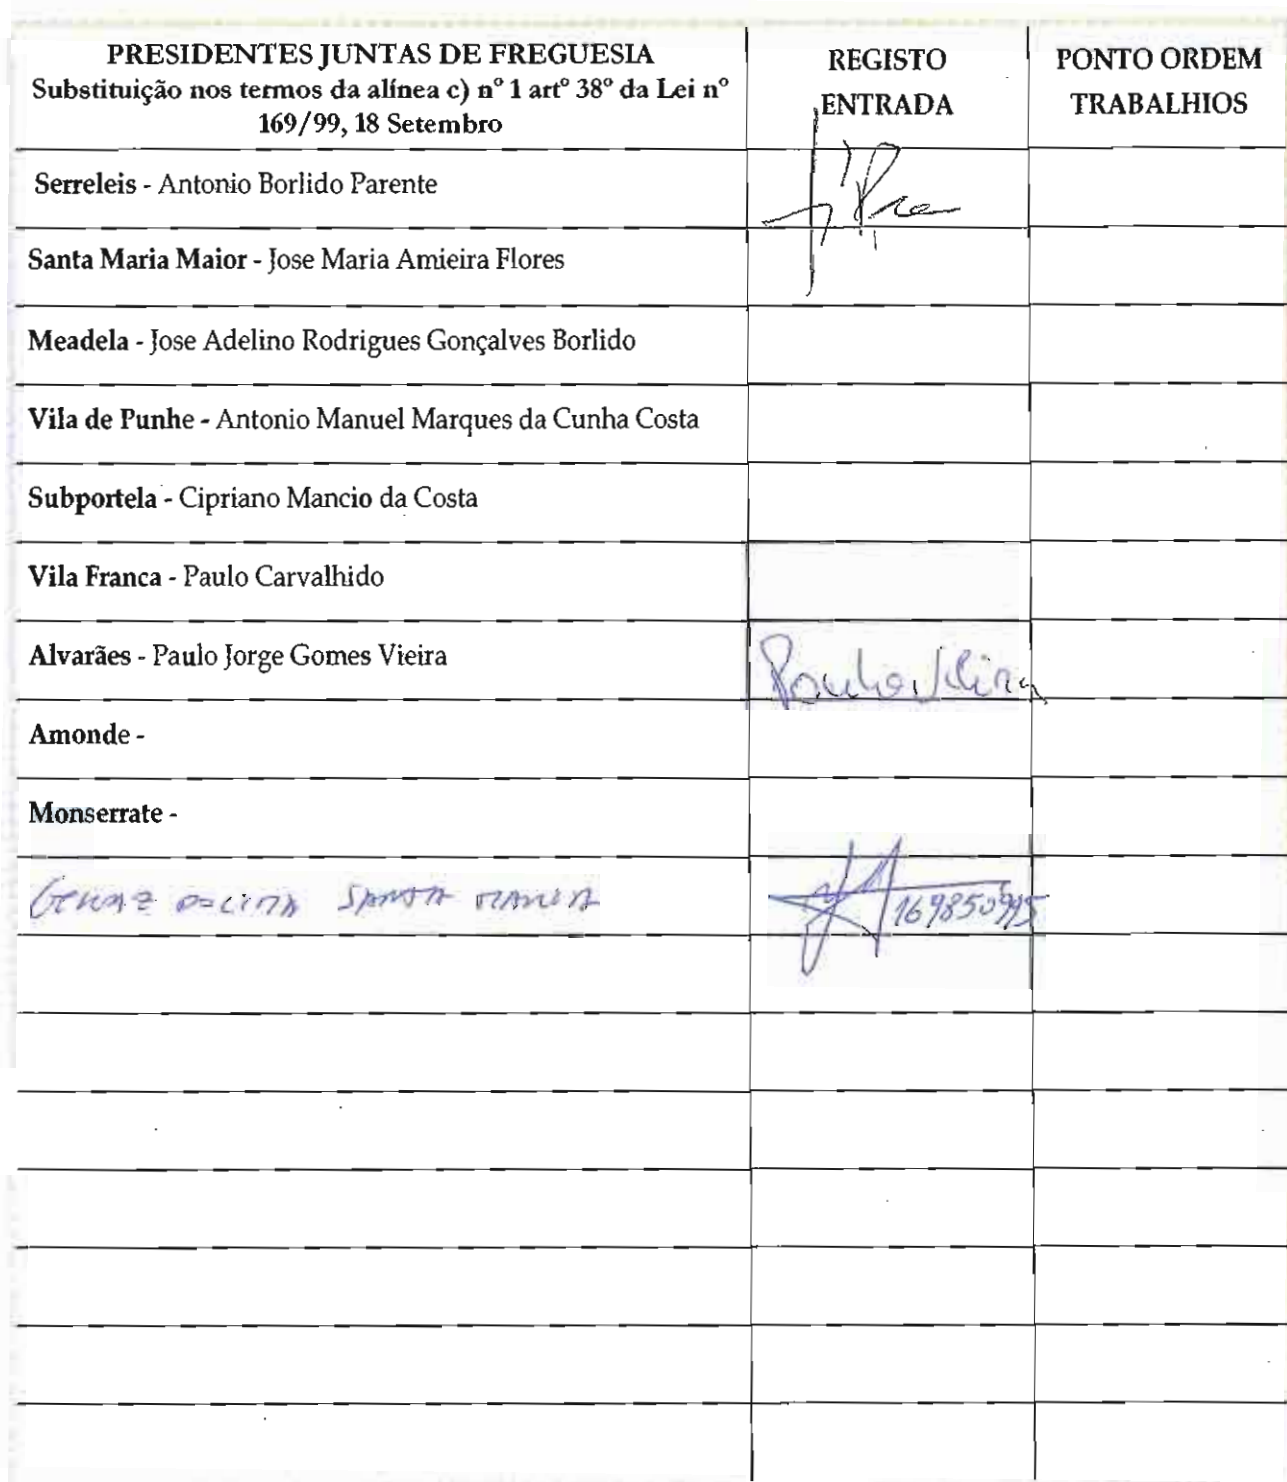 PRESIDENTES JUNTAS DE FREGUESIA
Substituição nos termos da alínea c) nº 1 artº 38º da Lei nº
169/99, 18 Setembro
REGISTO
ENTRADA
PONTO ORDEM
TRABALHIOS
Serreleis - Antonio Borlido Parente
Santa Maria Maior - Jose Maria Amieira Flores
Meadela - Jose Adelino Rodrigues Gonçalves Borlido
Vila de Punhe - Antonio Manuel Marques da Cunha Costa
Subportela - Cipriano Mancio da Costa
Vila Franca - Paulo Carvalhido
Alvarães - Paulo Jorge Gomes Vieira
Paulo Vieira
Amonde -
Monserrate -
SANTA MARIA